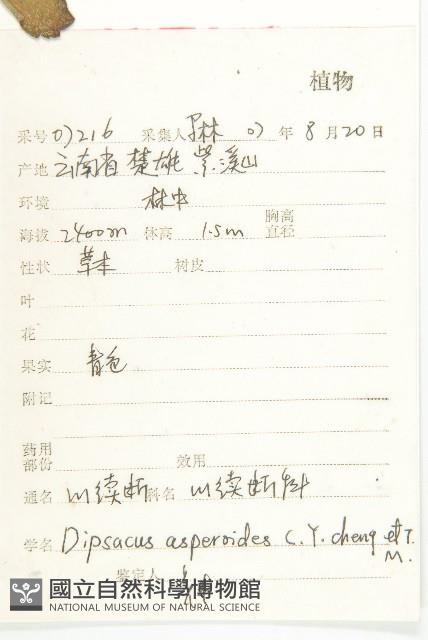 植物
采号 07216 采集人 林 07 年 8 月 20 日
产地 云南省 楚雄 紫溪山
环境 林中
海拔 2400m 体高 1.5m 胸高直径
性状 草本 树皮
叶
花
果实 青色
附记
药用部份 效用
通名 川续断 科名 川续断科
学名 Dipsacus asperoides C. Y. cheng et T. M.
鉴定人
國立自然科學博物館
NATIONAL MUSEUM OF NATURAL SCIENCE